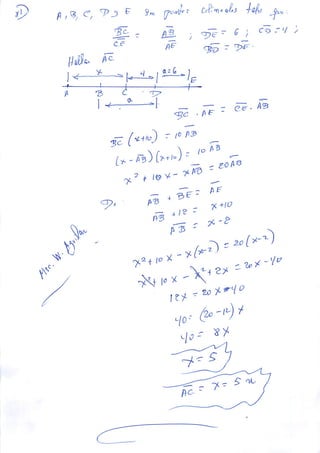 A, B, C, D y E son puntos colineales tales que:
BC/CE = AB/AE ; DE = 6 ; CD = 4 ;
BD = DE.
Hallar AC
x 4 a=6
A B C D E
a
BC . AE = CE . AB
BC (x+10) = 10 AB
(x - AB)(x+10) = 10 AB
x² + 10x - xAB = 20AB
De: AB + BE = AE
AB + 12 = x+10
AB = x-2
x² + 10x - x(x-2) = 20(x-2)
x² + 10x - x² + 2x = 20x - 40
12x = 20x - 40
40 = (20-12)x
40 = 8x
x = 5
AC = x = 5